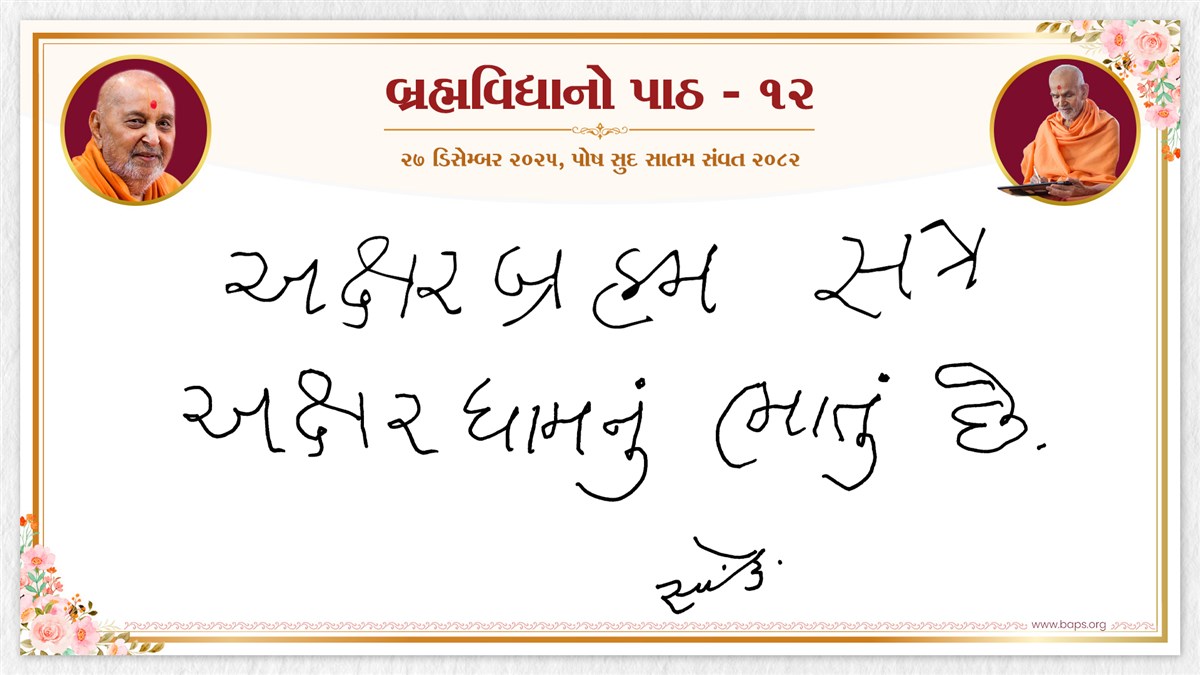 બ્રહ્મવિદ્યાનો પાઠ - ૧૨
૨૭ ડિસેમ્બર ૨૦૨૫, પોષ સુદ સાતમ સંવત ૨૦૮૨
અક્ષરબ્રહ્મ સત્રે
અક્ષરધામનું ભાતું છે.
www.baps.org